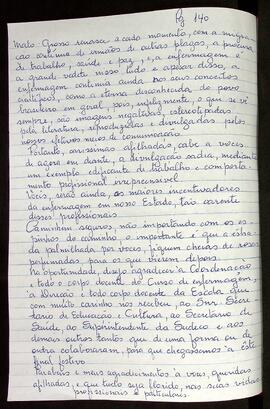 fg 140
Mato Grosso renasce a cada momento, com a migra
ção contínua de irmãos de outras plagas, à procura
de trabalho, saúde e paz, e, a enfermagem é
a grande vedete nisso tudo e apesar disso, a
enfermagem continua ainda nos seus conceitos
científicos, como a eterna desconhecida do povo
brasileiro em geral, pois, infelizmente, o que se vê
sempre, são imagens negativas, estereotipadas
pela literatura, reproduzidas e divulgadas pelos
nossos efetivos meios de comunicação.
Portanto, caríssimas afilhadas, cabe a vocês
de agora em diante, a divulgação sadia, mediante
um exemplo edificante de trabalho e comporta
mento profissional irrepreensível
Vocês, serão ainda, os maiores incentivadores
da enfermagem em nosso Estado, tais carente
desses profissionais.
Caminhem seguros, não importando com os es
pinhos do caminho, o importante é que a estra
da palmilhada por vocês, fiquem cheias de rosas
perfumadas para os que vierem depois.
Na oportunidade, desejo agradecer à Coordenação
e todo o corpo docente do Curso de enfermagem,
à Direção e todo corpo docente da Escola que
com muito carinho nos recebeu, ao Snr. Secre
tário de Educação e Cultura, ao Secretário de
Saúde, ao Superintendente da Sudeco e aos
demais outros tantos que de uma forma ou de
outra colaboraram, para que chegássemos a este
final festivo
Parabéns e mais agradecimentos a vocês, queridas
afilhadas, e que tudo seja florido, nas suas vidas
profissionais e particulares.